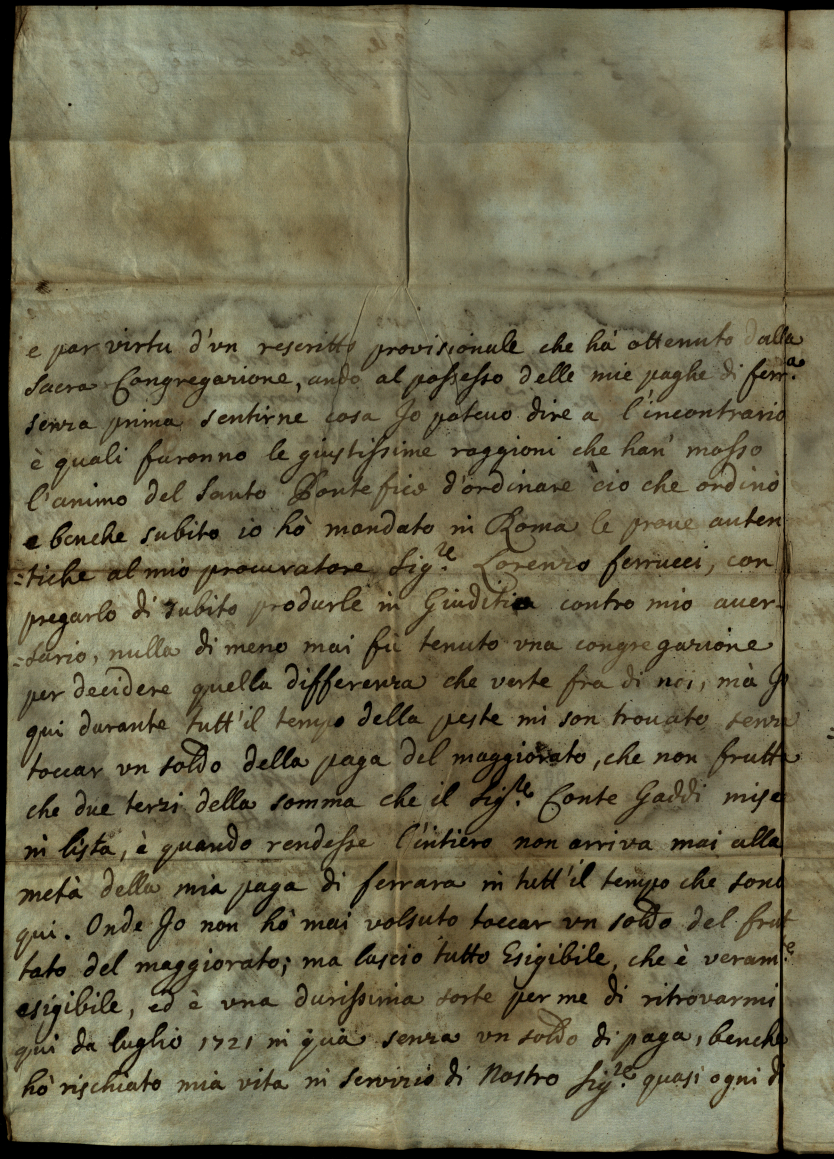 e par virtu d'vn rescritto provisionale che hà ottenuto dalla
Sacra Congregazione, andò al possesso delle mie paghe di ferr.ª
senza prima sentirne cosa Jo potevo dire a l'incontrario
è quali furonno le giustissime raggioni che han' mosso
l'animo del Santo Pontefice d'ordinare ciò che ordinò
e benche subito io hò mandato in Roma le proue auten
=tiche al mio procuratore Sig.re Lorenzo ferrucci, con
pregarlo di subito produrle in Giuditio contro mio auer-
=sario, nulla di meno mai fù tenuto vna congregazione
per decidere quella differenza che verte frà di noi, mà Jo
qui durante tutt'il tempo della peste mi son trouato senza
toccar vn soldo della paga del maggiorato, che non frutta
che due terzi della somma che il Sig.re Conte Gaddi mise
in lista, è quando rendesse l'intiero non arriva mai alla
metà della mia paga di ferrara in tutt'il tempo che sono
qui. Onde Jo non hò mai volsuto toccar vn soldo del frut
tato del maggiorato; ma lascio tutto Esigibile, che è veram.e
esigibile, ed è vna durissima sorte per me di ritrovarmi
qui da luglio 1721 in quà senza vn soldo di paga, benche
hò rischiato mia vita in servizio di Nostro Sig.re quasi ogni dì